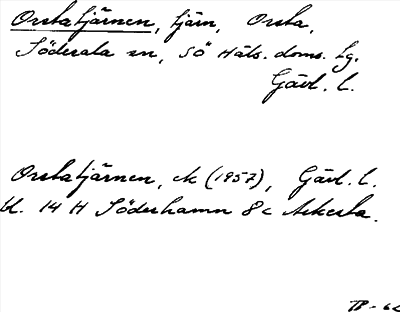 Orstatjärnen, tjärn, Orsta,
Söderala sn, SÖ Häls. doms. lg.
Gävl. l.
Orstatjärnen, ek (1957), Gävl. l.
bl. 14 H Söderhamn 8 c Askesta.